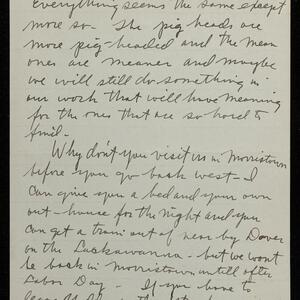 Everything seems the same except
more so - The pig heads are
more pig-headed and the mean
ones are meaner and maybe
we will still do something in
our work that will have meaning
for the ones that are so hard to
find -
Why don't you visit us in Morristown
before you go back west - I
can give you a bed and your own
out-house for the night and you
can get a train out of near by Dover
on the Lackawanna - but we wont
be back in Morristown untill after
Labor Day - If you have to